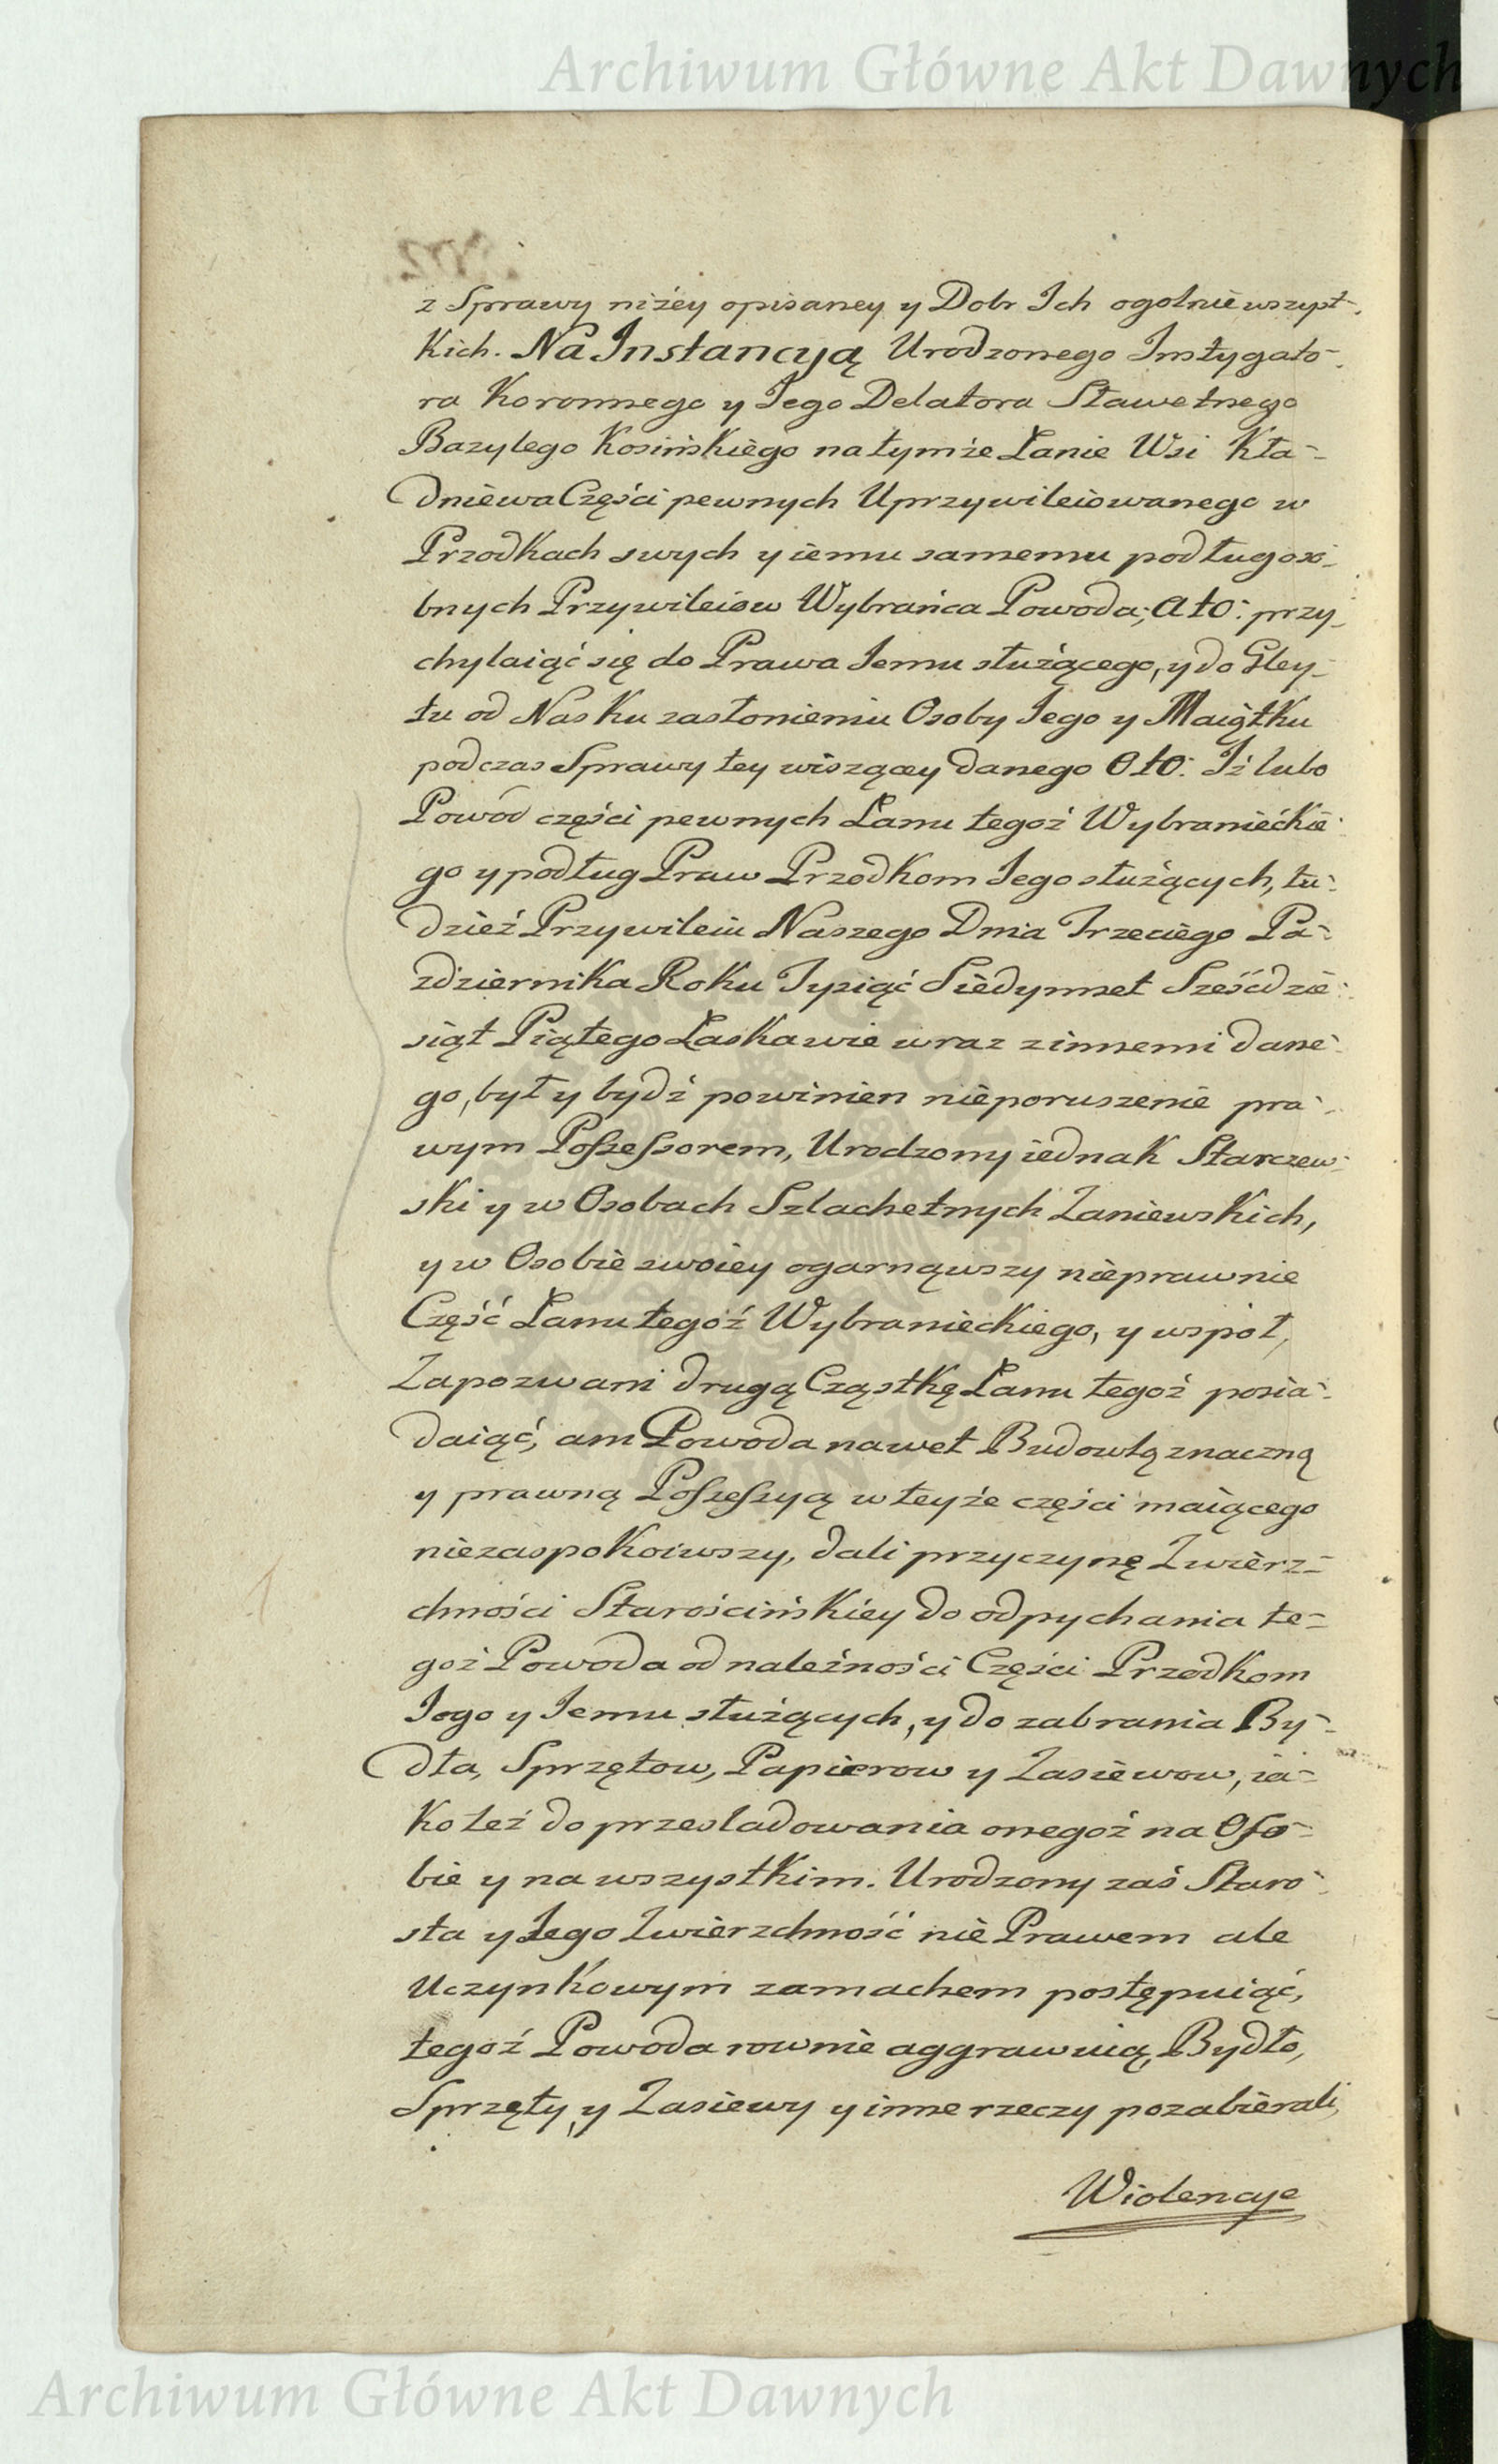 Archiwum Główne Akt Dawnych
z Sprawy niżey opisaney y Dobr Ich ogolnie wszyst-
kich. Na Instancyą Urodzonego Instygato-
ra Koronnego y Jego Delatora Sławetnego
Bazylego Kosińskiego na tymże Łanie Wsi Kła-
dniewa Części pewnych Uprzywileiowanego w
Przodkach swych y iemu samemu podług oso-
bnych Przywileiow Wybrańca Powoda; A to: przy-
chylaiąć się do Prawa Jemu służącego, y do Gley-
tu od Nas ku zasłonieniu Osoby Jego y Maiątku
podczas Sprawy tey wiszącey danego Oto: Iż lubo
Powód części pewnych Łanu tegoż Wybranieckie-
go y podług Praw Przodkom Jego służących, tu-
dzież Przywileiu Naszego Dnia Trzeciego Pa-
zdziernika Roku Tysiąć Siedymset Sześćdzie-
siąt Piątego Łaskawie wraz z innemi dane-
go, był y bydź powinien nieporuszenie pra-
wym Possessorem, Urodzony iednak Starczew-
ski y w Osobach Szlachetnych Zaniewskich,
y w Osobie swoiey ogarnąwszy nieprawnie
Część Łanu tegoż Wybranieckiego, y wspoł,
Zapozwani drugą Cząstkę Łanu tegoż posia-
daiąć, am Powoda nawet Budowlą znaczną
y prawną Possessyą w teyże części maiącego
niezaspokoiwszy, dali przyczynę Zwierz-
chności Starościńskiey do odpychania te-
goż Powoda od należności Części Przodkom
Jego y Jemu służących, y do zabrania By-
dła, Sprzętow, Papierow y Zasiewow, ia-
ko też do przesladowania onegoż na Oso-
bie y na wszystkim. Urodzony zaś Staro-
sta y Jego Zwierzchność nie Prawem ale
Uczynkowym zamachem postępuiąć,
tegoż Powoda rownie aggrawuią, Bydło,
Sprzęty, y Zasiewy y inne rzeczy pozabierali,
Wiolencye
Archiwum Główne Akt Dawnych